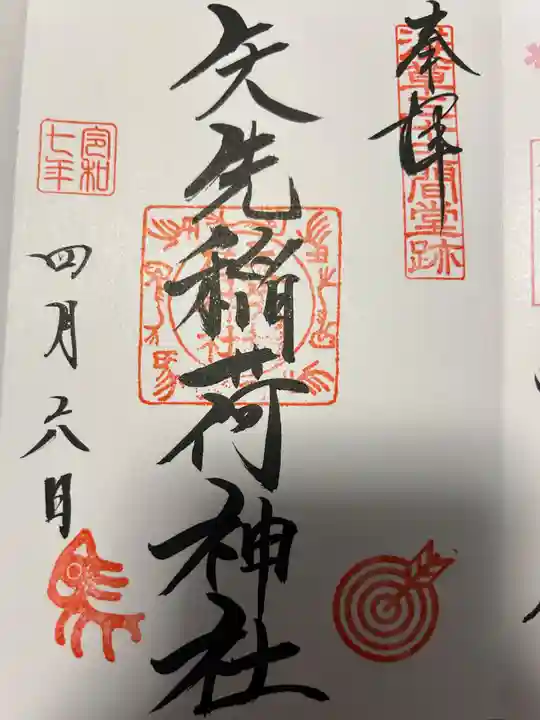 奉拝
浅草三十三間堂跡
矢先稲荷神社
令和
七年
四月二八日